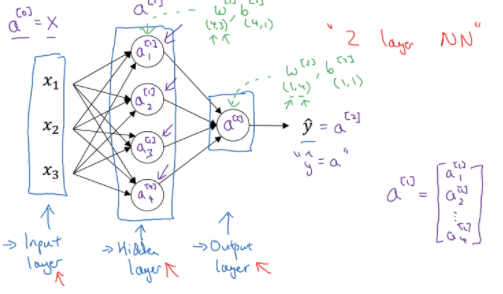 a^[0] = X
a^[1]
w^[1], b^[1]
(4,3) (4,1)
"2 layer NN"
w^[2], b^[2]
(1,4) (1,1)
x₁
x₂
x₃
a₁^[1]
a₂^[1]
a₃^[1]
a₄^[1]
a^[2]
ŷ = a^[2]
"ŷ = a"
a^[1] = [a₁^[1]
a₂^[1]
⋮
a₄^[1]]
→ Input layer
→ Hidden layer
→ Output layer